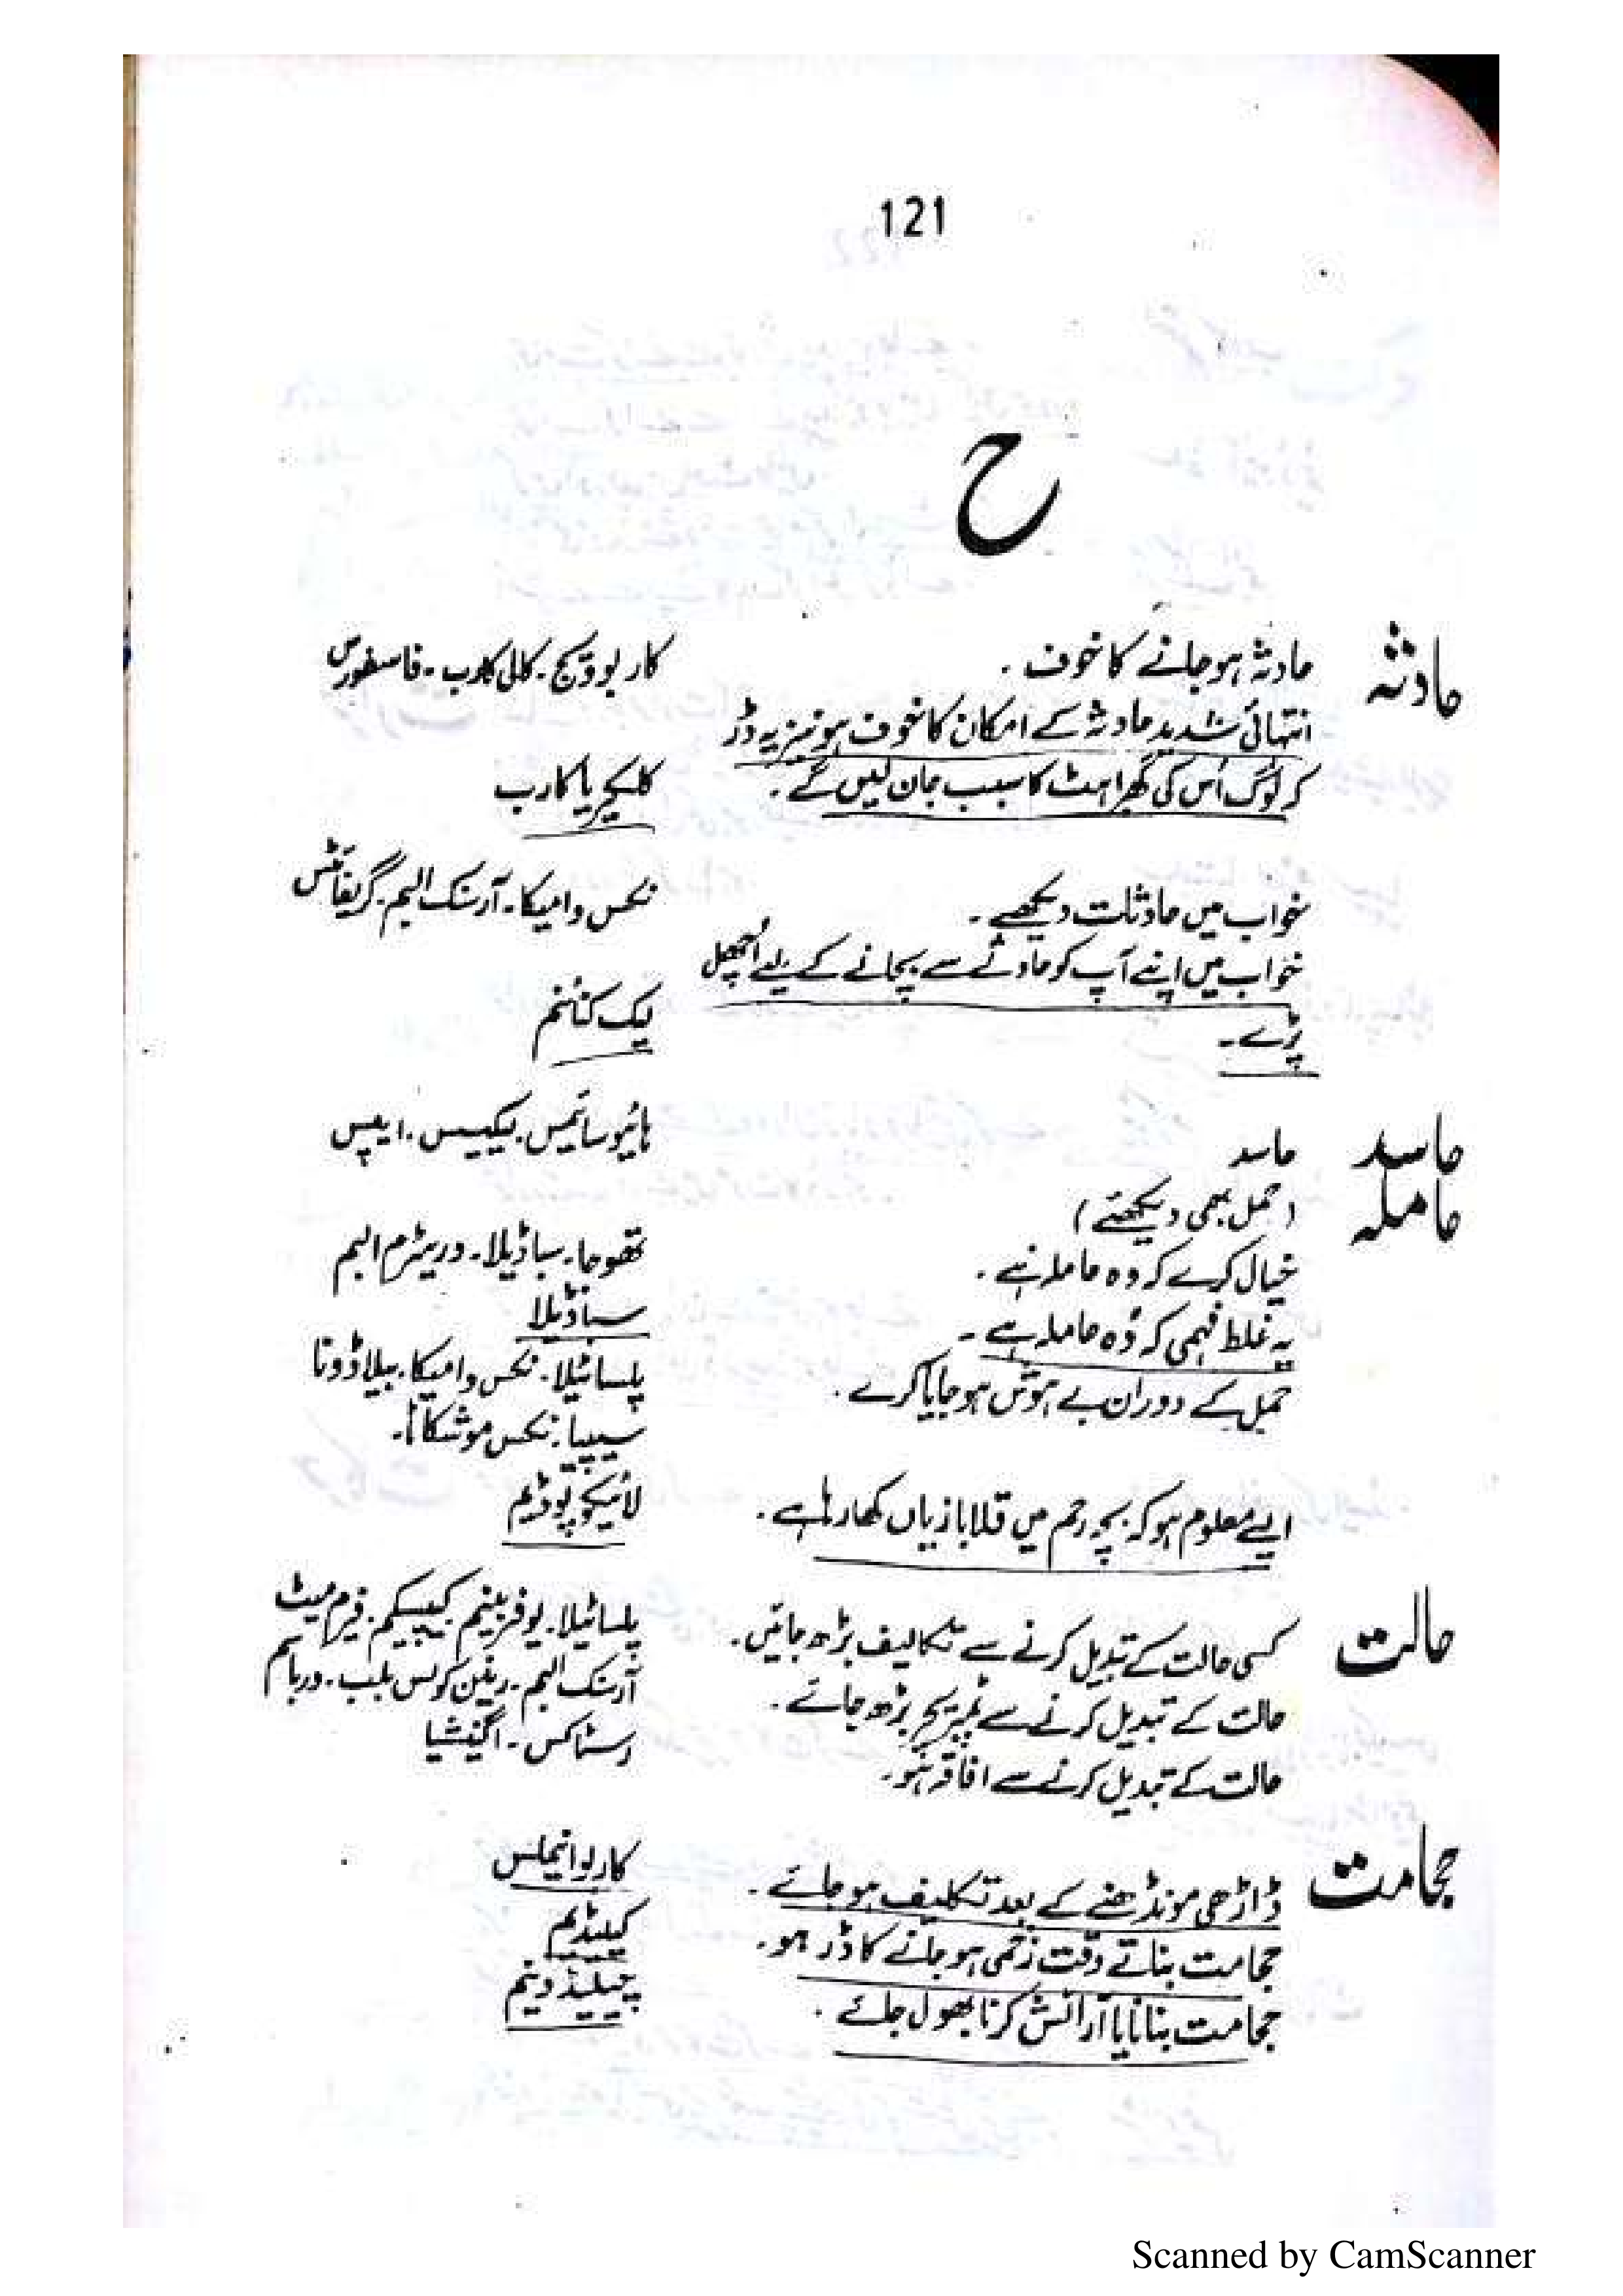 121
ح
حادثہ
حادثہ ہوجانے کا خوف۔ کاربوویج۔ کالی کارب۔ فاسفورس
انتہائی شدید حادثہ کے امکان کا خوف ہو نیز یہ ڈر
کہ لوگ اُس کی گھبراہٹ کا سبب جان لیں گے۔ کلکیریا کارب
خواب میں حادثات دیکھے۔ نکس وامیکا۔ آرسنک البم۔ گریفائٹس
خواب میں اپنے آپ کو حادثے سے بچانے کے لیے اُچھل
پڑے۔ لیک کنائنم
حاسد حاسد ہائیوسائمس۔ لیکیسس۔ ایپس
حاملہ (حمل بھی دیکھئے)
خیال کرے کہ وہ حاملہ ہے۔ تھوجا۔ سباڈیلا۔ وریٹرم البم
یہ غلط فہمی کہ وُہ حاملہ ہے۔ سباڈیلا
حمل کے دوران بے ہوش ہوجایا کرے۔ پلساٹیلا۔ نکس وامیکا۔ بیلاڈونا
سیپیا۔ نکس موشکاٹا۔
ایسے معلوم ہو کہ بچہ رحم میں قلابازیاں کھا رہا ہے۔ لائیکوپوڈیم
حالت کسی حالت کے تبدیل کرنے سے تکالیف بڑھ جائیں۔ پلساٹیلا۔ یوفربینم کیپسیکم۔ فیرم میٹ
حالت کے تبدیل کرنے سے ٹمپریچر بڑھ جائے۔ آرسنک البم۔ رینن کولس بلب۔
حالت کے تبدیل کرنے سے افاقہ ہو۔ رسٹاکس۔ اگنیشیا
حجامت ڈاڑھی مونڈھنے کے بعد تکلیف ہو جائے۔ کاربوانیملس
حجامت بناتے وقت زخمی ہو جانے کا ڈر ہو۔ کیلیڈیم
حجامت بنانا یا آرائش کرنا بھول جائے۔
Scanned by CamScanner